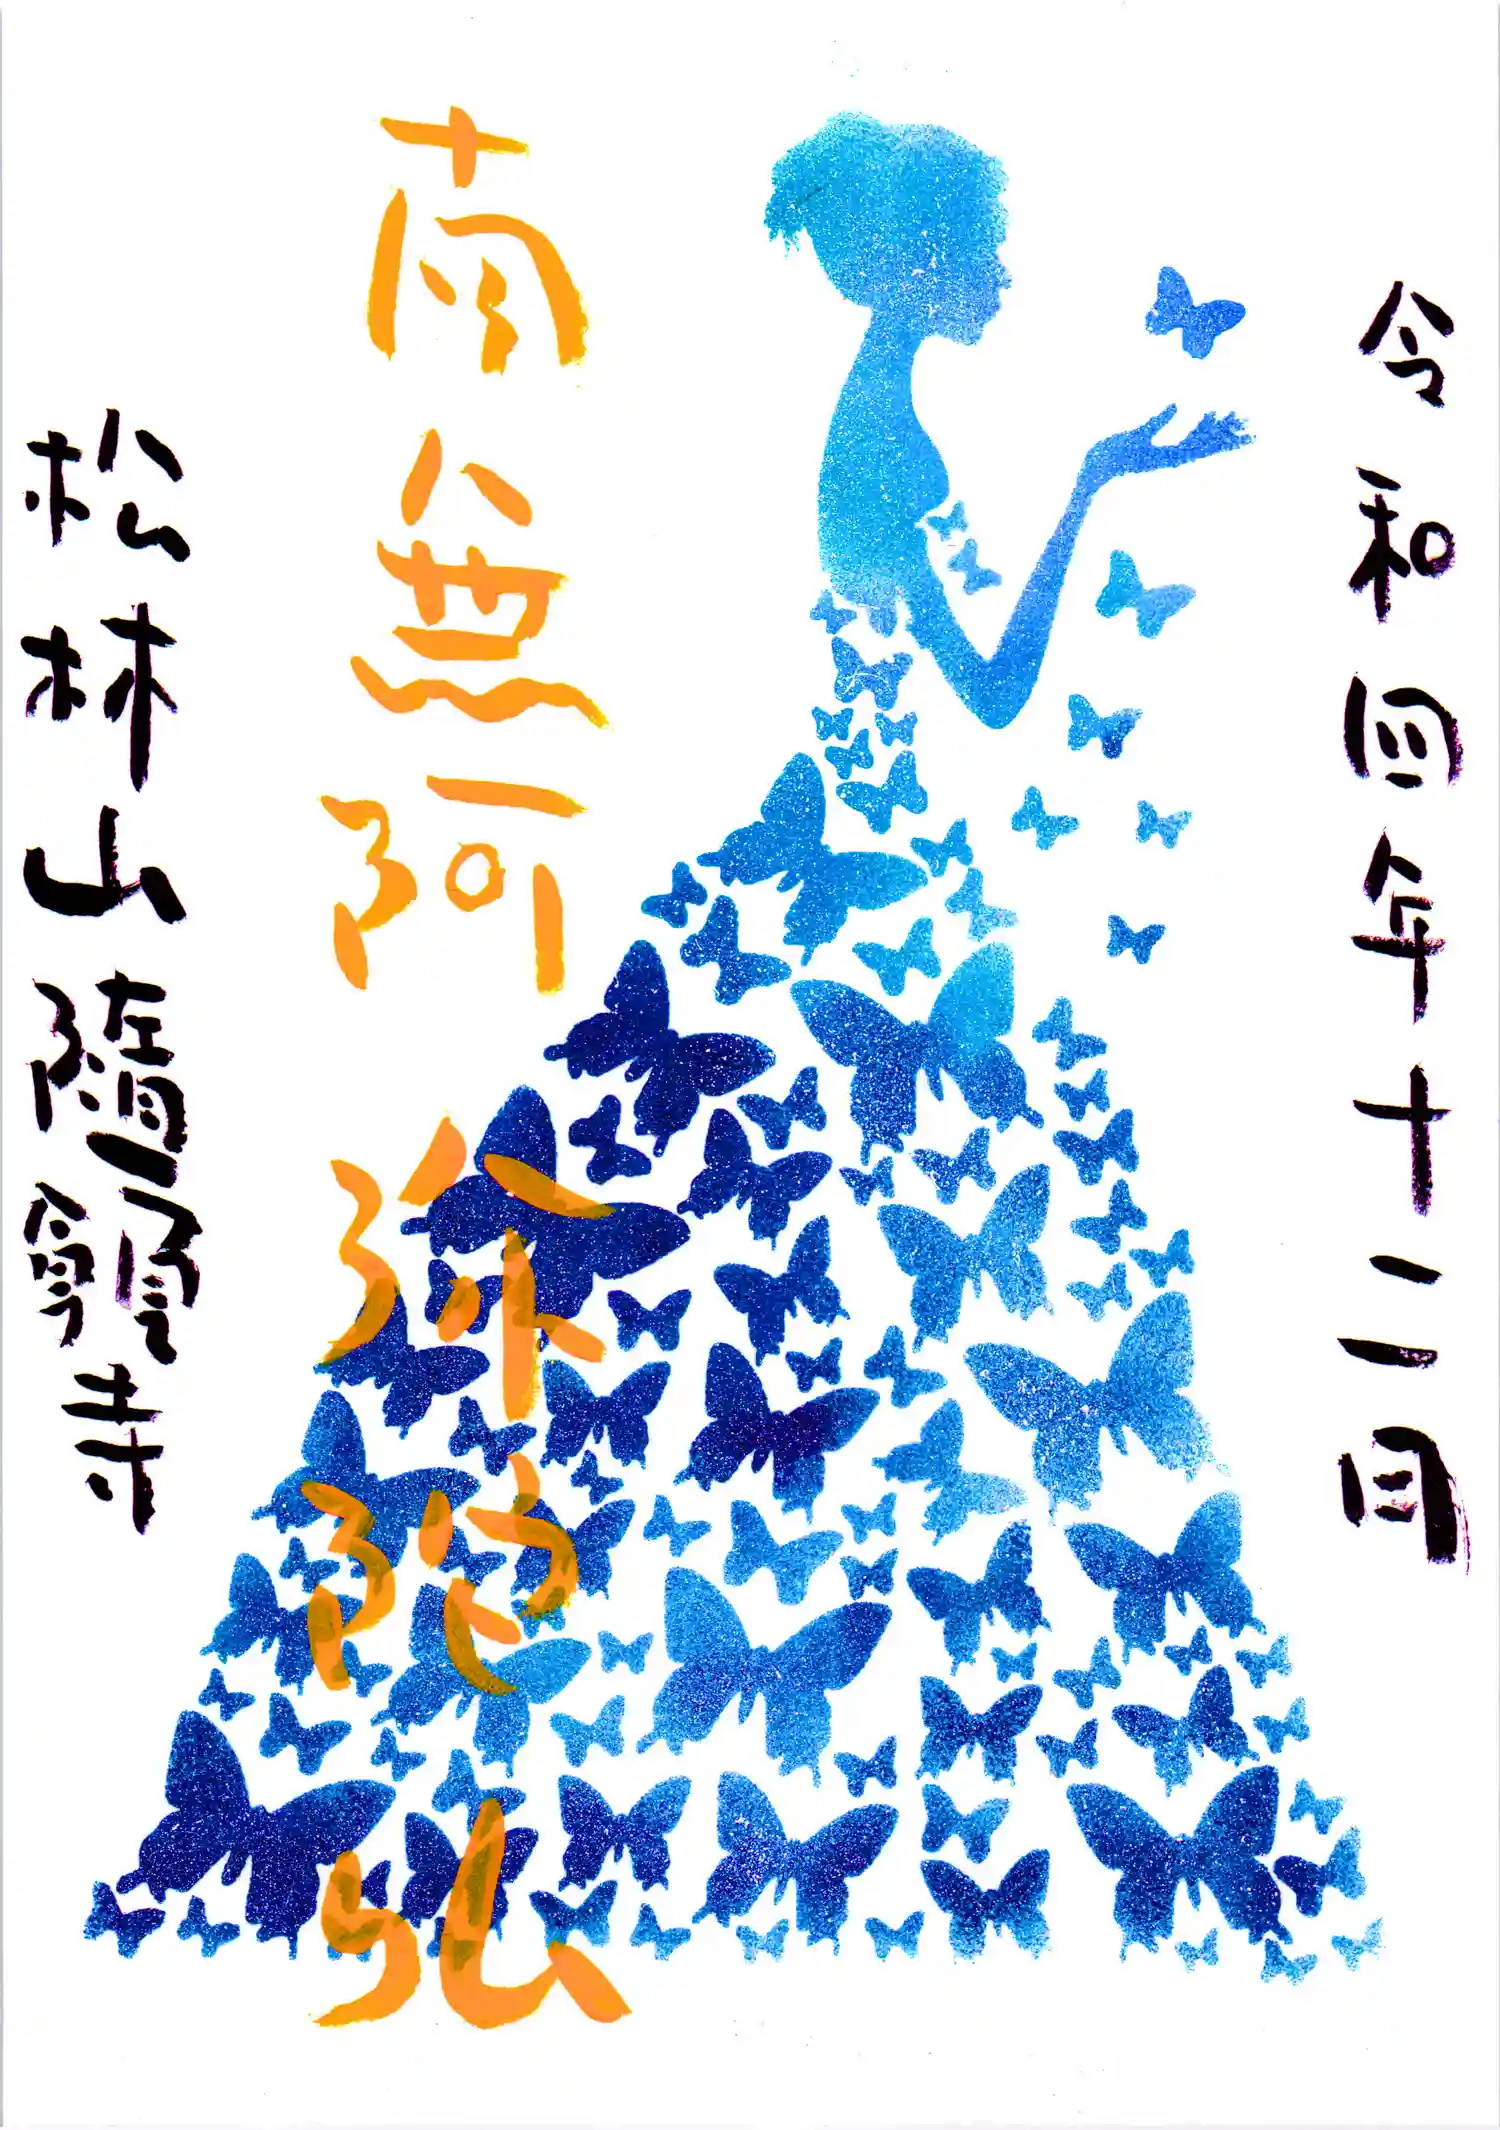 令和四年十二月
南無阿弥陀仏
松林山隨寺